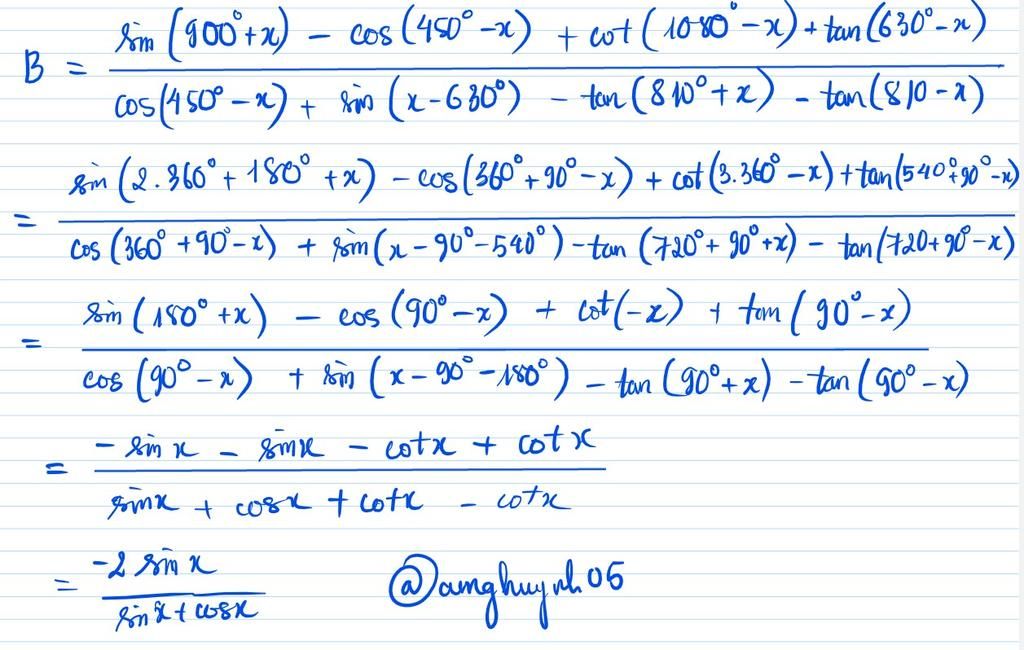 sin (900°+x) − cos (450° −x) + cot (1080° −x) + tan (630° −x)
B = ―
cos(450° − x) + sin (x−630°) − tan (810°+x) − tan (810 −x)
sin (2.360° + 180° +x) − cos(360° + 90° − x) + cot (3.360° − x) + tan(540°+90° −x)
=
cos (360° +90°−x) + sin(x − 90° − 540°) − tan (720° + 90° +x) − tan(720+90° − x)
sin (180° +x) − cos (90° −x) + cot(−x) + tan (90° −x)
=
cos (90° −x) + sin (x − 90° −180°) − tan (90° + x) − tan (90° − x)
− sin x − sinx − cotx + cot x
=
sinx + cosx + cotx − cotx
−2 sin x
= @amghuynh05
sin x + cosx